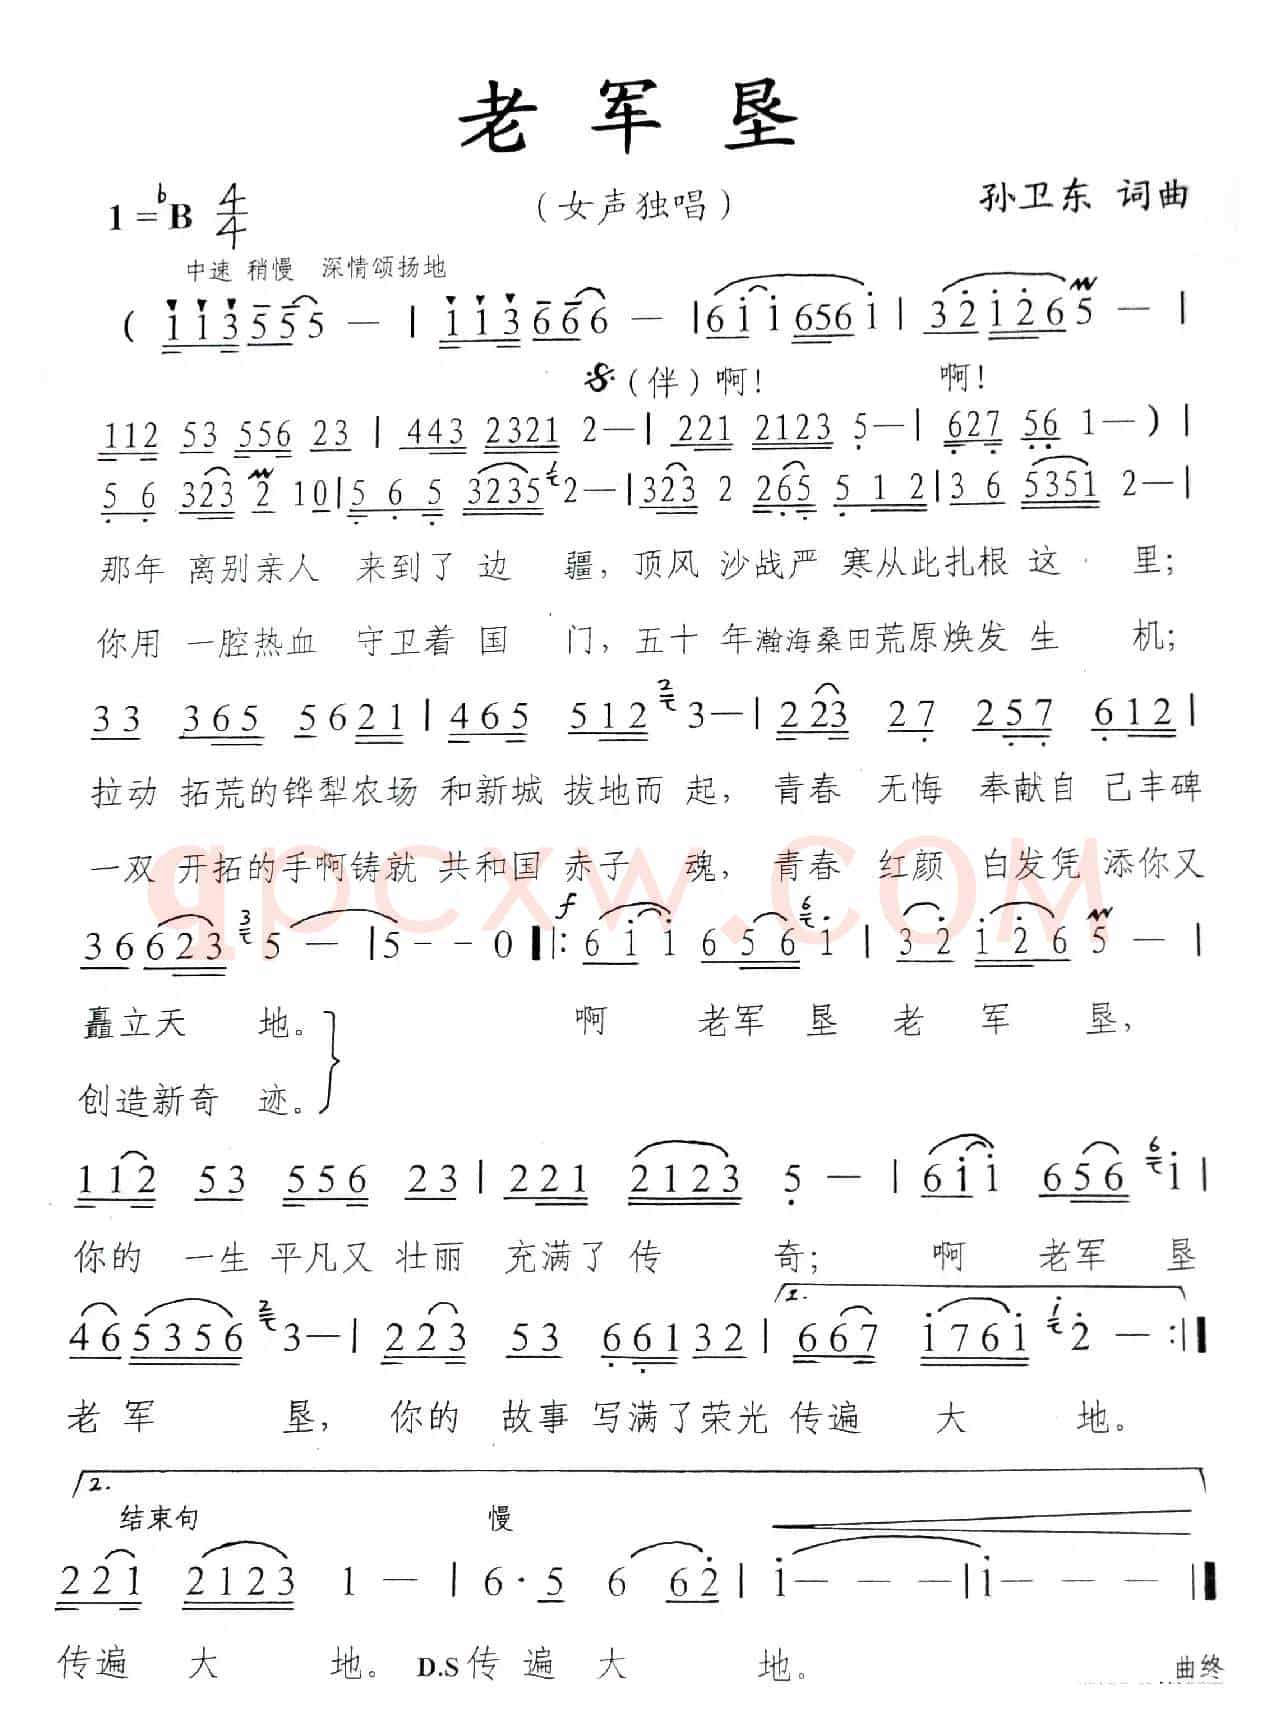 老军垦
1=♭B 4/4 （女声独唱） 孙卫东 词曲
中速 稍慢 深情颂扬地
( 1 1 3 5 5 5 — | 1 1 3 6 6 6 — | 6 i i 6 5 6 i | 3 2 i 2 6 5 — |
（伴）啊！ 啊！
112 53 556 23 | 443 2321 2— | 221 2123 5— | 627 56 1—) |
5 6 323 2 10 | 5 6 5 3235 2— | 323 2 265 5 1 2 | 3 6 5351 2— |
那年 离别亲人 来到了 边 疆，顶风 沙战严 寒从此扎根 这 里；
你用 一腔热血 守卫着 国 门，五十 年瀚海桑田荒原焕发 生 机；
33 365 5621 | 465 512 2 3— | 223 27 257 612 |
拉动 拓荒的铧犁农场 和新城 拔地而 起，青春 无悔 奉献自 己丰碑
一双 开拓的手啊铸就 共和国 赤子 魂，青春 红颜 白发凭 添你又
qpcxw.com
36623 3 5 — | 5 - - 0 |: f 6 i i 6 5 6 6 i | 3 2 i 2 6 5 — |
矗立天 地。 啊 老军 垦 老 军 垦，
创造新奇 迹。
112 53 556 23 | 221 2123 5 — | 6 i i 656 6 i |
你的 一生 平凡又 壮丽 充满了 传 奇； 啊 老军 垦
1.
46 5356 2 3— | 223 53 66132 | 667 i76i i 2 — :|
老 军 垦，你的 故事 写满了荣光 传遍 大 地。
2.
结束句 慢
221 2123 1 — | 6· 5 6 62 | i — — — | i — — — ‖
传遍 大 地。 D.S 传 遍 大 地。 曲终